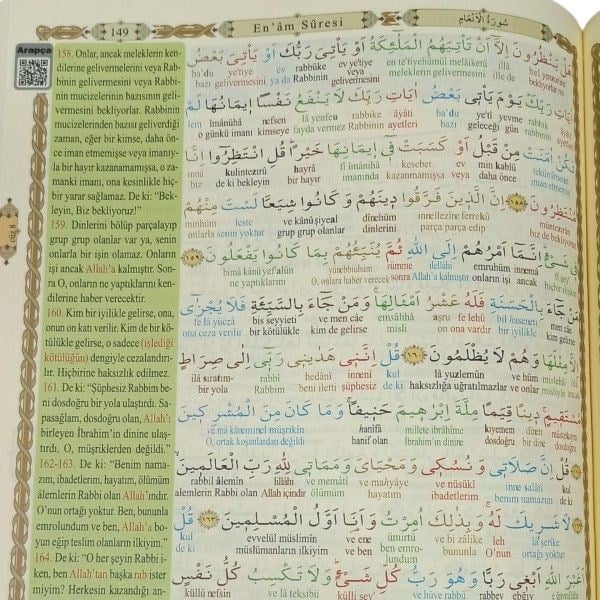 149
En'âm Sûresi
سُورَةُ الْاَنْعَامِ
Arapça
158. Onlar, ancak meleklerin ken-
dilerine gelivermelerini veya Rab-
binin gelivermesini veya Rabbi-
nin mucizelerinin bazısının geli-
vermesini bekliyorlar. Rabbinin
mucizelerinden bazısı geliverdiği
zaman, eğer bir kimse, daha ön-
ce iman etmemişse veya imanıy-
la bir hayır kazanamamışsa, o za-
manki imanı, ona kesinlikle hiç-
bir yarar sağlamaz. De ki: "Bek-
leyin, Biz bekliyoruz!"
159. Dinlerini bölüp parçalayıp
grup grup olanlar var ya, senin
onlarla bir işin olamaz. Onların
işi ancak Allah'a kalmıştır. Son-
ra O, onların ne yaptıklarını ken-
dilerine haber verecektir.
160. Kim bir iyilikle gelirse, ona,
onun on katı verilir. Kim de bir kö-
tülükle gelirse, o sadece (işlediği
kötülüğün) dengiyle cezalandırı-
lır. Hiçbirine haksızlık edilmez.
161. De ki: "Şüphesiz Rabbim be-
ni dosdoğru bir yola ulaştırdı. Sa-
pasağlam, dosdoğru olan, Allah'ı
birleyen İbrahim'in dinine ulaş-
tırdı. O, müşriklerden değildi."
162-163. De ki: "Benim nama-
zım, ibadetlerim, hayatım, ölümüm
âlemlerin Rabbi olan Allah'ındır.
O'nun ortağı yoktur. Ben, bununla
emrolundum ve ben, Allah'a bo-
yun eğip teslim olanların ilkiyim."
164. De ki: "O her şeyin Rabbi i-
ken, ben Allah'tan başka rab ister
miyim? Herkesin kazandığı an-
cüz 8
هَلْ يَنْظُرُونَ اِلَّٓا اَنْ تَأْتِيَهُمُ الْمَلٰٓئِكَةُ اَوْ يَأْتِيَ رَبُّكَ اَوْ يَأْتِيَ بَعْضُ
ba'du ye'tiye ev rabbüke ev ye'tiye en te'tiyehümül melâiketü illâ hel yenzurûne
اٰيَاتِ رَبِّكَ يَوْمَ يَأْتِي بَعْضُ اٰيَاتِ رَبِّكَ لَا يَنْفَعُ نَفْسًا اِيمَانُهَا لَمْ
lem îmânühâ nefsen lâ yenfeu rabbike âyâti ba'du ye'tî yevme rabbike âyâti
o günkü imanı kimseye fayda vermez Rabbinin ayetleri bazı geleceği gün
تَكُنْ اٰمَنَتْ مِنْ قَبْلُ اَوْ كَسَبَتْ فِٓي اِيمَانِهَا خَيْرًا قُلِ انْتَظِرُٓوا اِنَّا
innâ kulintezırû hayrâ fî îmânihâ kesebet ev min kablü
biz de ki bekleyin bir hayır imanında kazanmamışsa veya daha önce
مُنْتَظِرُونَ ١٥٨ اِنَّ الَّذِينَ فَرَّقُوا دِينَهُمْ وَكَانُوا شِيَعًا لَسْتَ مِنْهُمْ
minhüm leste ve kânû şiyeal dînehüm innellezîne ferrekû
onlarla senin yoktur grup grup olanlar dinlerini parça parça edip
فِي شَيْءٍ اِنَّمَٓا اَمْرُهُمْ اِلَى اللّٰهِ ثُمَّ يُنَبِّئُهُمْ بِمَا كَانُوا يَفْعَلُونَ ١٥٩
bimâ kânû yef'alûn yünebbiühüm sümme ilellâhi emruhüm innemâ
ne yaptıklarını O, onlara haber verecek sonra Allah'a kalmıştır onların işi ancak
مَنْ جَٓاءَ بِالْحَسَنَةِ فَلَهُ عَشْرُ اَمْثَالِهَا وَمَنْ جَٓاءَ بِالسَّيِّئَةِ فَلَا يُجْزٰٓى
fe lâ yüczâ bis seyyieti ve men câe emsâlihâ aşru fe lehû bil haseneti men câe
ona ceza verilir bir kötülükle kim de gelirse misli on ona vardır bir iyilikle kim gelirse
اِلَّا مِثْلَهَا وَهُمْ لَا يُظْلَمُونَ ١٦٠ قُلْ اِنَّنِي هَدٰينِي رَبِّٓي اِلٰى صِرَاطٍ
ilâ sıratım- rabbî hedânî innenî kul lâ yuzlemûn ve hüm
bir yola Rabbi beni iletti şüphesiz de ki haksızlığa uğratılmazlar ve onlar
مُسْتَقِيمٍ دِينًا قِيَمًا مِلَّةَ اِبْرٰهِيمَ حَنِيفًا وَمَا كَانَ مِنَ الْمُشْرِكِينَ
ve mâ kâne minel müşrikîn hanîfâ millete ibrâhîme kıyemen dînen müstekıym
O, ortak koşanlardan değildi hanif olan İbrahim'in dinine dosdoğru bir dine dosdoğru
قُلْ اِنَّ صَلَاتِي وَنُسُكِي وَمَحْيَايَ وَمَمَاتِي لِلّٰهِ رَبِّ الْعَالَمِينَ
rabbil âlemîn lillâhi ve memâtî ve mahyâye ve nüsükî inne salâtî kul
alemlerin Rabbi olan Allah içindir ölümüm hayatım ibadetlerim benim namazım de ki
لَا شَرِيكَ لَهُ وَبِذٰلِكَ اُمِرْتُ وَاَنَا اَوَّلُ الْمُسْلِمِينَ ١٦٣ قُلْ
kul evvelül müslimîn ve ene ümirtü ve bi zâlike leh lâ şerîke
de ki müslümanların ilkiyim ve ben ben emrolundum bununla O'nun ortağı yoktur
اَغَيْرَ اللّٰهِ اَبْغِي رَبًّا وَهُوَ رَبُّ كُلِّ شَيْءٍ وَلَا تَكْسِبُ كُلُّ نَفْسٍ
küllü nefsin ve lâ teksibü külli şey' ve hüve rabbü